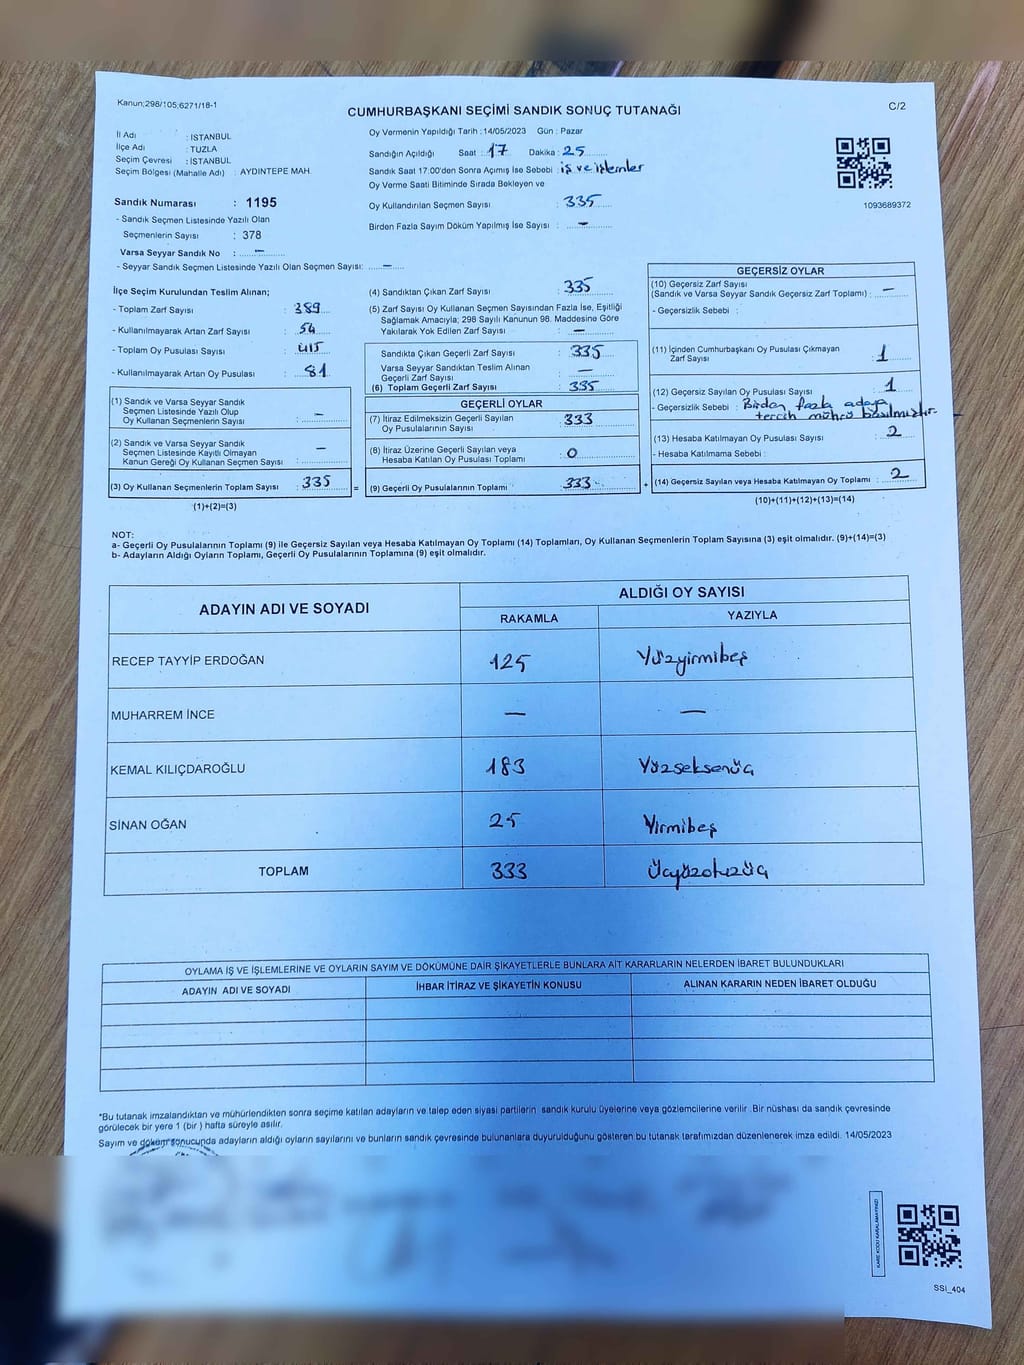 Kanun;298/105;6271/18-1
CUMHURBAŞKANI SEÇİMİ SANDIK SONUÇ TUTANAĞI
C/2
İl Adı : İSTANBUL
İlçe Adı : TUZLA
Seçim Çevresi : İSTANBUL
Seçim Bölgesi (Mahalle Adı) : AYDINTEPE MAH.
Sandık Numarası : 1195
- Sandık Seçmen Listesinde Yazılı Olan
Seçmenlerin Sayısı : 378
Varsa Seyyar Sandık No : —
- Seyyar Sandık Seçmen Listesinde Yazılı Olan Seçmen Sayısı: —
Oy Vermenin Yapıldığı Tarih :14/05/2023 Gün : Pazar
Sandığın Açıldığı Saat : 17 Dakika : 25
Sandık Saat 17:00'den Sonra Açımış İse Sebebi : iş ve işlemler
Oy Verme Saati Bitiminde Sırada Bekleyen ve
Oy Kullandırılan Seçmen Sayısı : 335
Birden Fazla Sayım Döküm Yapılmış İse Sayısı : —
1093689372
İlçe Seçim Kurulundan Teslim Alınan;
- Toplam Zarf Sayısı : 389
- Kullanılmayarak Artan Zarf Sayısı : 54
- Toplam Oy Pusulası Sayısı : 415
- Kullanılmayarak Artan Oy Pusulası : 81
(1) Sandık ve Varsa Seyyar Sandık
Seçmen Listesinde Yazılı Olup
Oy Kullanan Seçmenlerin Sayısı : —
(2) Sandık ve Varsa Seyyar Sandık
Seçmen Listesinde Kayıtlı Olmayan
Kanun Gereği Oy Kullanan Seçmen Sayısı : —
(3) Oy Kullanan Seçmenlerin Toplam Sayısı : 335 =
(1)+(2)=(3)
(4) Sandıktan Çıkan Zarf Sayısı : 335
(5) Zarf Sayısı Oy Kullanan Seçmen Sayısından Fazla İse, Eşitliği
Sağlamak Amacıyla; 298 Sayılı Kanunun 98. Maddesine Göre
Yakılarak Yok Edilen Zarf Sayısı : —
Sandıkta Çıkan Geçerli Zarf Sayısı : 335
Varsa Seyyar Sandıktan Teslim Alınan
Geçerli Zarf Sayısı : —
(6) Toplam Geçerli Zarf Sayısı : 335
GEÇERLİ OYLAR
(7) İtiraz Edilmeksizin Geçerli Sayılan
Oy Pusulalarının Sayısı : 333
(8) İtiraz Üzerine Geçerli Sayılan veya
Hesaba Katılan Oy Pusulası Toplamı : 0
(9) Geçerli Oy Pusulalarının Toplamı : 333 +
GEÇERSİZ OYLAR
(10) Geçersiz Zarf Sayısı
(Sandık ve Varsa Seyyar Sandık Geçersiz Zarf Toplamı) : —
- Geçersizlik Sebebi :
(11) İçinden Cumhurbaşkanı Oy Pusulası Çıkmayan
Zarf Sayısı : 1
(12) Geçersiz Sayılan Oy Pusulası Sayısı : 1
- Geçersizlik Sebebi : Birden fazla adaya
tercih mührü basılmıştır.
(13) Hesaba Katılmayan Oy Pusulası Sayısı : 2
- Hesaba Katılmama Sebebi :
(14) Geçersiz Sayılan veya Hesaba Katılmayan Oy Toplamı : 2
(10)+(11)+(12)+(13)=(14)
NOT:
a- Geçerli Oy Pusulalarının Toplamı (9) ile Geçersiz Sayılan veya Hesaba Katılmayan Oy Toplamı (14) Toplamları, Oy Kullanan Seçmenlerin Toplam Sayısına (3) eşit olmalıdır. (9)+(14)=(3)
b- Adayların Aldığı Oyların Toplamı, Geçerli Oy Pusulalarının Toplamına (9) eşit olmalıdır.
ADAYIN ADI VE SOYADI
ALDIĞI OY SAYISI
RAKAMLA YAZIYLA
RECEP TAYYİP ERDOĞAN 125 Yüzyirmibeş
MUHARREM İNCE — —
KEMAL KILIÇDAROĞLU 183 Yüzseksenüç
SİNAN OĞAN 25 Yirmibeş
TOPLAM 333 Üçyüzotuzüç
OYLAMA İŞ VE İŞLEMLERİNE VE OYLARIN SAYIM VE DÖKÜMÜNE DAİR ŞİKAYETLERLE BUNLARA AİT KARARLARIN NELERDEN İBARET BULUNDUKLARI
ADAYIN ADI VE SOYADI İHBAR İTİRAZ VE ŞİKAYETİN KONUSU ALINAN KARARIN NEDEN İBARET OLDUĞU
*Bu tutanak imzalandıktan ve mühürlendikten sonra seçime katılan adayların ve talep eden siyasi partilerin sandık kurulu üyelerine veya gözlemcilerine verilir. Bir nüshası da sandık çevresinde
görülecek bir yere 1 (bir ) hafta süreyle asılır.
Sayım ve döküm sonucunda adayların aldığı oyların sayılarını ve bunların sandık çevresinde bulunanlara duyurulduğunu gösteren bu tutanak tarafımızdan düzenlenerek imza edildi. 14/05/2023
KARE KODU KARALAMAYINIZ!
SSI_404